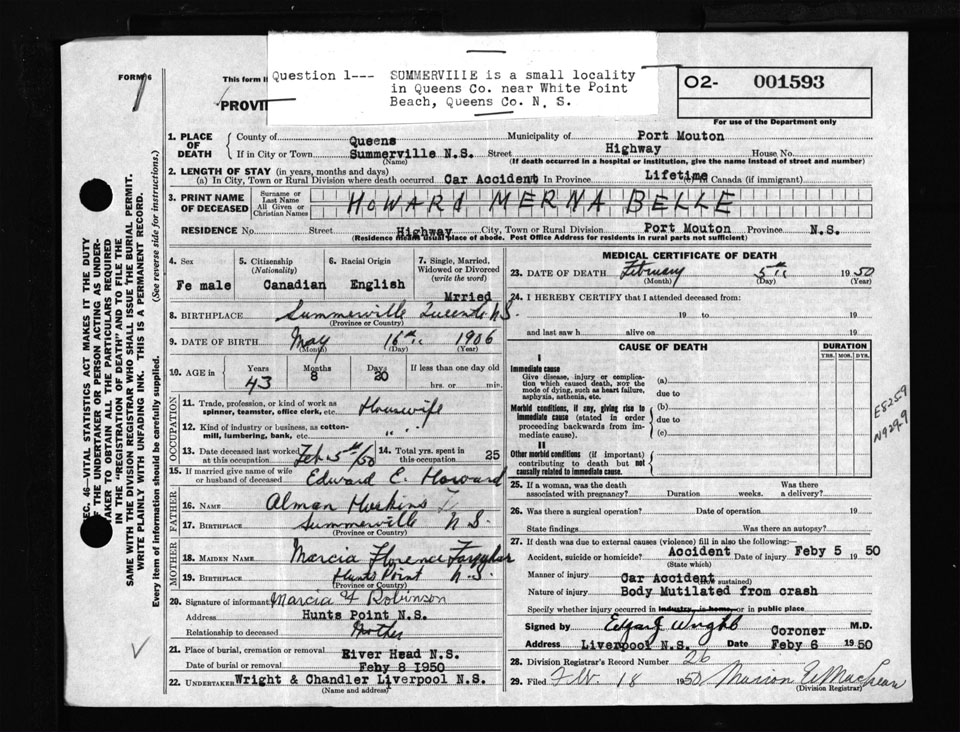 FORM 6
This form i
PROVI
Question 1--- SUMMERVIIIE is a small locality
in Queens Co. near White Point
Beach, Queens Co. N. S.
02- 001593
For use of the Department only
1. PLACE OF DEATH
County of Queens Municipality of Port Mouton
If in City or Town Summerville N.S. Street Highway House No.
(Name) (If death occurred in a hospital or institution, give the name instead of street and number)
2. LENGTH OF STAY (in years, months and days)
(a) In City, Town or Rural Division where death occurred Car Accident In Province Lifetime (c) In Canada (if immigrant)
3. PRINT NAME OF DECEASED
Surname or Last Name
All Given or Christian Names
HOWARD MERNA BELLE
RESIDENCE No. Street Highway City, Town or Rural Division Port Mouton Province N.S.
(Residence means usual place of abode. Post Office Address for residents in rural parts not sufficient)
4. Sex
Fe male
5. Citizenship
(Nationality)
Canadian
6. Racial Origin
English
7. Single, Married, Widowed or Divorced
(write the word)
Mrried
8. BIRTHPLACE Summerville N.S.
(Province or Country)
9. DATE OF BIRTH May 16th 1906
(Month) (Day) (Year)
10. AGE in Years Months Days If less than one day old
43 8 20 hrs. or min.
OCCUPATION
11. Trade, profession, or kind of work as
spinner, teamster, office clerk, etc. Housewife
12. Kind of industry or business, as cotton-
mill, lumbering, bank, etc. " "
13. Date deceased last worked
at this occupation Feb 5th/50
14. Total yrs. spent in
this occupation 25
15. If married give name of wife
or husband of deceased Edward E. Howard
FATHER
16. NAME Alman Huskins
17. BIRTHPLACE Summerville N.S.
(Province or Country)
MOTHER
18. MAIDEN NAME Marcia Florence
19. BIRTHPLACE Hunts Point N.S.
(Province or Country)
20. Signature of informant Marcia F Robinson
Address Hunts Point N.S.
Relationship to deceased Mother
21. Place of burial, cremation or removal River Head N.S.
Date of burial or removal Feby 8 1950
22. UNDERTAKER Wright & Chandler Liverpool N.S.
(Name and address)
MEDICAL CERTIFICATE OF DEATH
23. DATE OF DEATH February 5th 1950
(Month) (Day) (Year)
24. I HEREBY CERTIFY that I attended deceased from:
19 to 19
and last saw h alive on 19
CAUSE OF DEATH
DURATION
YRS. MOS. DYS.
I
Immediate cause
Give disease, injury or complica-
tion which caused death, NOT the
mode of dying, such as heart failure,
asphyxia, asthenia, etc.
(a)
due to
Morbid conditions, if any, giving rise to
immediate cause (stated in order
proceeding backwards from im-
mediate cause).
(b)
due to
(c)
II
Other morbid conditions (if important)
contributing to death but not
causally related to immediate cause.
25. If a woman, was the death
associated with pregnancy? Duration weeks. Was there
a delivery?
26. Was there a surgical operation? Date of operation 19
State findings Was there an autopsy?
27. If death was due to external causes (violence) fill in also the following:
Accident, suicide or homicide? Accident Date of injury Feby 5 1950
(State which)
Manner of injury Car Accident
(How sustained)
Nature of injury Body Mutilated from crash
Specify whether injury occurred in industry, in home, or in public place
Signed by Coroner M.D.
Address Liverpool N.S. Date Feby 6 1950
28. Division Registrar's Record Number 26
29. Filed Feb. 18 1950 Marion E MacLean
(Division Registrar)
E8259
N929-9
SEC. 46—VITAL STATISTICS ACT MAKES IT THE DUTY
OF THE UNDERTAKER OR PERSON ACTING AS UNDER-
TAKER TO OBTAIN ALL THE PARTICULARS REQUIRED
IN THE "REGISTRATION OF DEATH" AND TO FILE THE
SAME WITH THE DIVISION REGISTRAR WHO SHALL ISSUE THE BURIAL PERMIT.
WRITE PLAINLY WITH UNFADING INK. THIS IS A PERMANENT RECORD.
Every item of information should be carefully supplied. (See reverse side for instructions.)